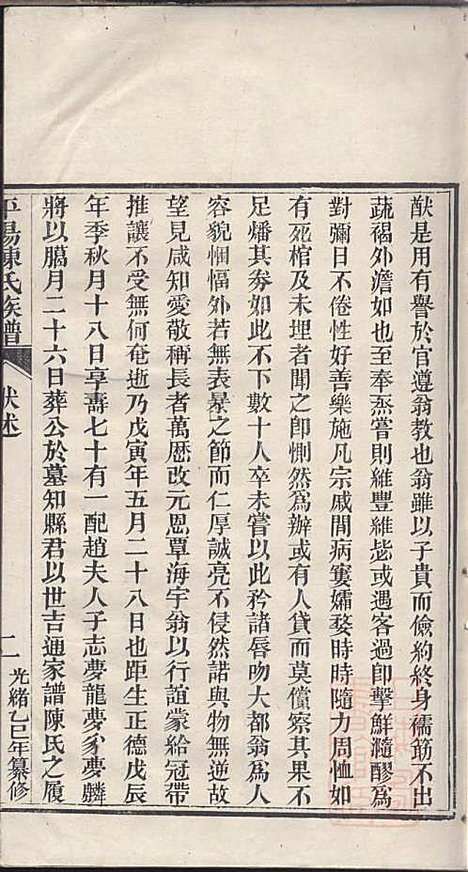 猷是用有譽於官遵翁教也翁雖以子貴而儉約終身襦筯不出
蔬褐外澹如也至奉烝嘗則維豐維毖或遇客過卽擊鮮瀡醪爲
對彌日不倦性好善樂施凡宗戚閒病寠孀婺時時隨力周恤如
有死棺及未埋者聞之卽惻然爲辦或有人貸而莫償察其果不
足燔其券如此不下數十人卒未嘗以此矜諸唇吻大都翁爲人
容貌悃愊外若無表暴之節而仁厚誠亮不侵然諾與物無逆故
望見咸知愛敬稱長者萬厯改元恩覃海宇翁以行誼蒙給冠帶
推讓不受無何奄逝乃戊寅年五月二十八日也距生正德戊辰
年季秋月十八日享壽七十有一配趙夫人子志夢龍夢豸夢麟
將以臘月二十六日葬公於墓知縣君以世吉通家譜陳氏之履
平陽陳氏族譜
狀述
二
光緒乙巳年纂修